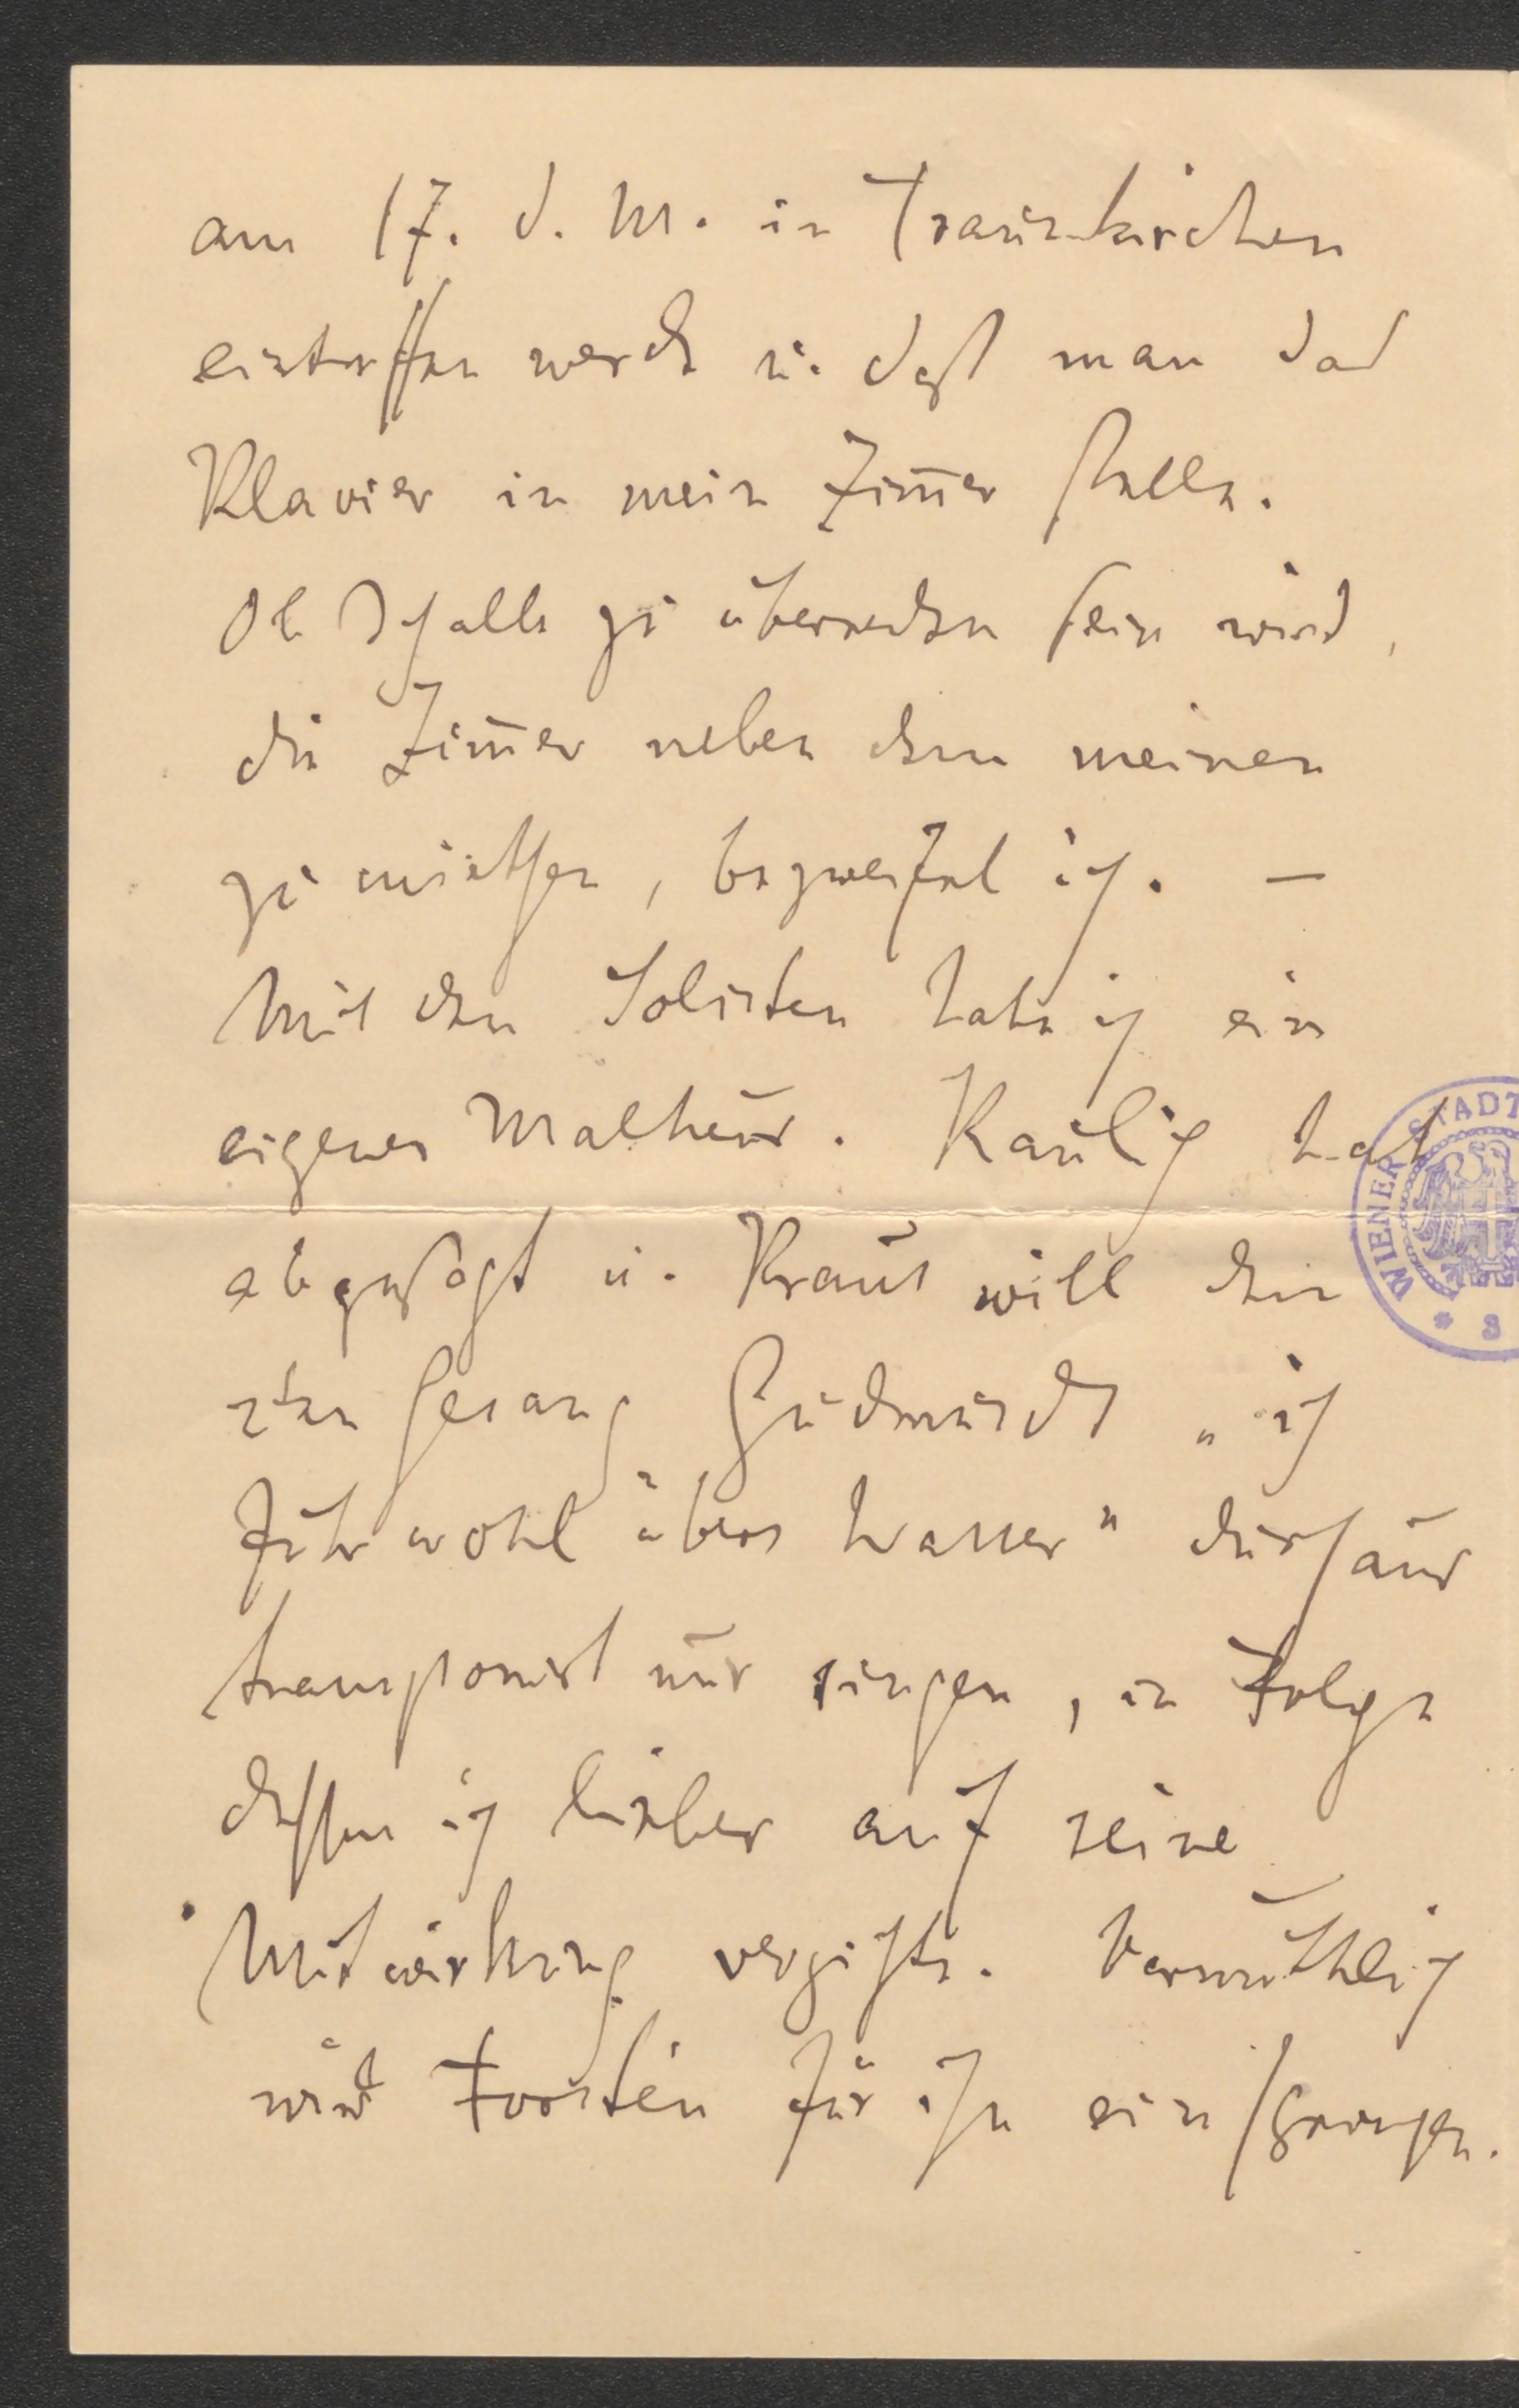 am 17. d. M. in Traunkirchen
eintreffen werde u. daß man das
Klavier in mein Zim̄er stelle.
Ob Schalk zu überreden sein wird,
die Zim̄er neben dem meinen
zu miethen, bezweifel ich. —
Mit den Solisten habe ich ein
eigenes Malheur. Raulich hat
abgesagt u. Kraus will den
2ten Gesang Gudmunds „ich
fuhr wohl übers Wasser" durchaus
transponirt nur singen, in Folge
dessen ich lieber auf seine
Mitwirkung verzichte. Vermuthlich
wird Forstén für ihn einspringen.
WIENER STADT